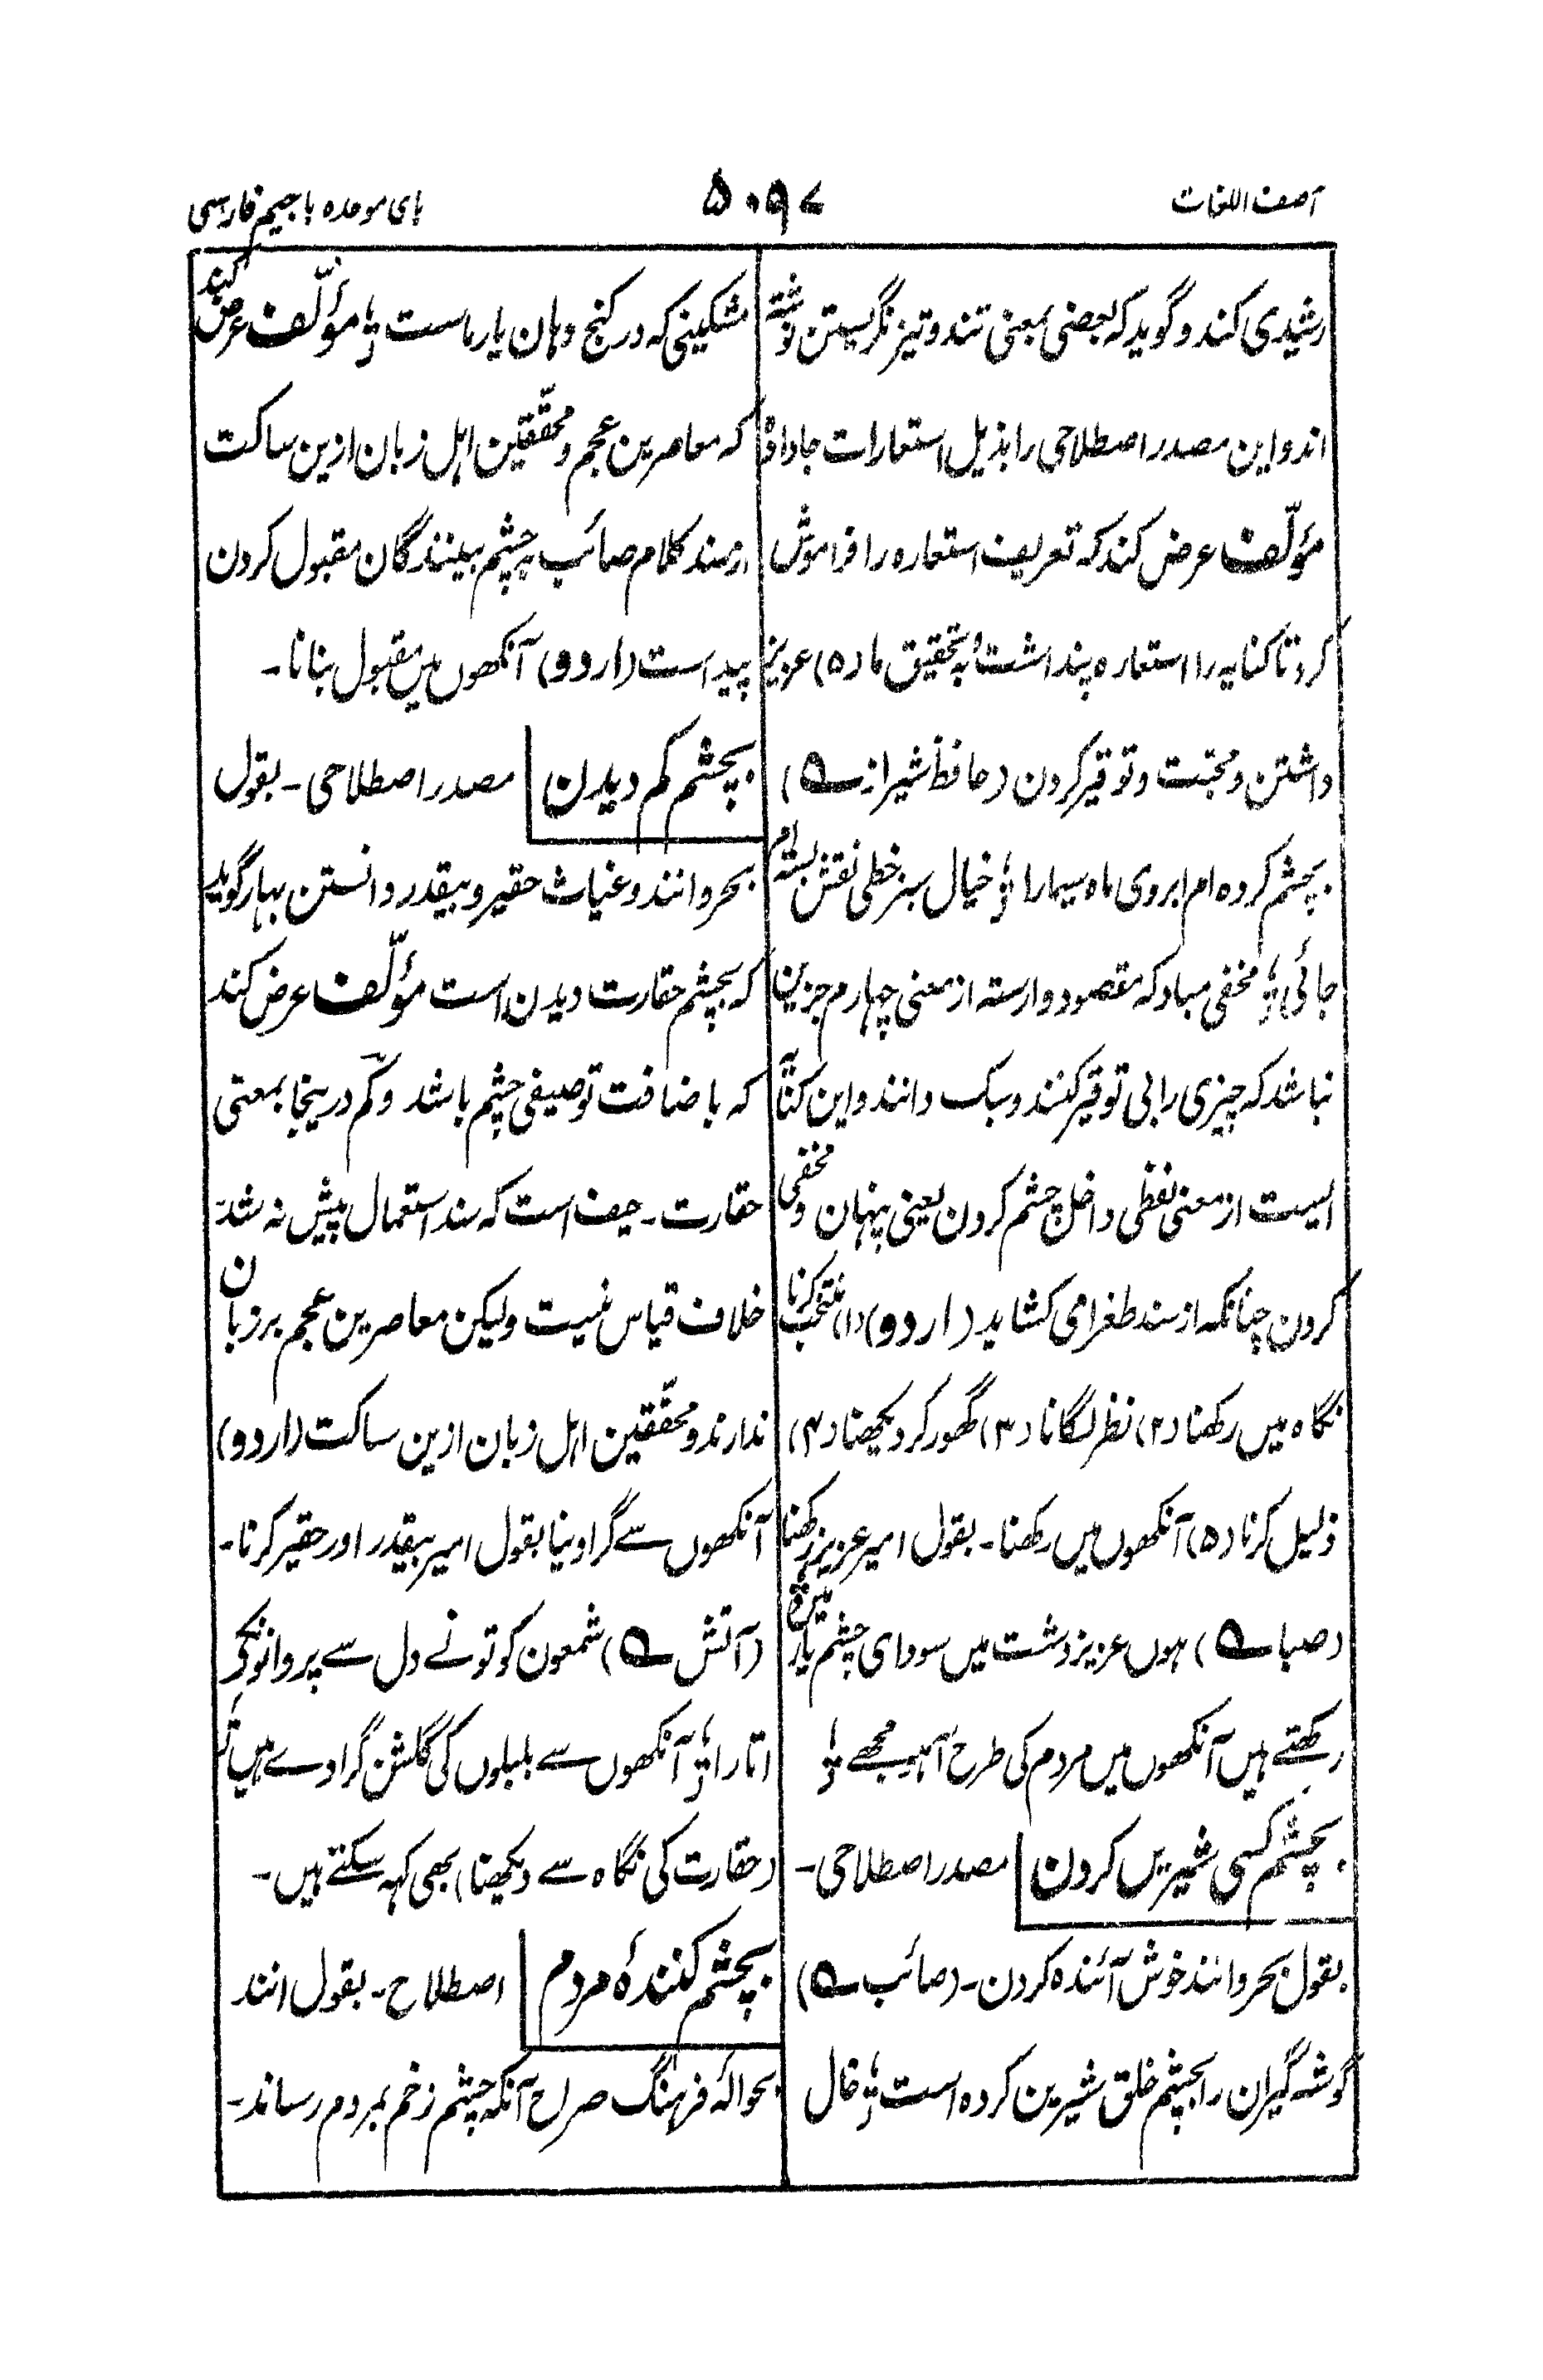 آصف اللغات
۵۰۹۷
بای موحده با جیم فارسی
رشیدی کند و گوید که بعضی بمعنی تند و تیز نگریستن نوشته
اند و این مصدر اصطلاحی را بذیل استعارات جا داد
مؤلّف عرض کند که تعریف استعاره را فراموش
کرد تا کنایه را استعاره پنداشت بہ تحقیق ما (۵) عزیز
داشتن و محبّت و توقیر کردن (حافظ شیراز ؎)
بچشم کرده ام ابروی ماه سیما را ؛ خیال سبز خطی نقش بسته ام
جائی ؛ مخفی مباد که مقصود وارسته از معنی چهارم جزین
نباشد که چیزی را بی توقیر کنند و سبک دانند و این کنا
ایست از معنی لفظی داخل چشم کردن یعنی پنهان و مخفی
کردن چنانکه از سند طغرا می کشاید (اردو) (۱) منتخب کرنا
نگاہ میں رکھنا (۲) نظر لگانا (۳) گھور کر دیکھنا (۴)
ذلیل کرنا (۵) آنکھوں میں رکھنا ۔ بقول امیر عزیز رکھنا
(صبا ؎) ہوں عزیز دشت میں سودای چشم یار
رکھتے ہیں آنکھوں میں مردم کی طرح آہو مجھے ؛
بچشم کسی شیریں کردن | مصدر اصطلاحی ۔
بقول بحر و انند خوش آئنده کردن ۔ (صائب ؎)
گوشه گیران را بچشم خلق شیرین کرده است ؛ خال
مشکینی که در کنج دهان یار ماست ؛ مؤلّف عرض کند
که معاصرین عجم و محقّقین اہل زبان ازین ساکت
از سند کلام صائب بچشم بینندگان مقبول کردن
پیداست (اردو) آنکھوں میں مقبول بنانا ۔
بچشم کم دیدن | مصدر اصطلاحی ۔ بقول
بحر و انند و غیاث حقیر و بیقدر دانستن بہار گوید
که بچشم حقارت دیدن است مؤلّف عرض کند
که باضافت توصیفی چشم باشد و کم درینجا بمعنی
حقارت ۔ حیف است که سند استعمال پیش نہ شد
خلاف قیاس نیست ولیکن معاصرین عجم بر زبان
ندارند و محقّقین اہل زبان ازین ساکت (اردو)
آنکھوں سے گرا دینا بقول امیر بیقدر اور حقیر کرنا ۔
(آتش ؎) شمعون کو تو نے دل سے پروانوں کے
اتارا ؛ آنکھوں سے بلبلوں کی گلشن گرا دے ہیں
(حقارت کی نگاہ سے دیکھنا) بھی کہہ سکتے ہیں ۔
بچشم کنندۂ مردم | اصطلاح ۔ بقول انند
بحوالۂ فرہنگ صراح آنکہ چشم زخم بمردم رساند ۔